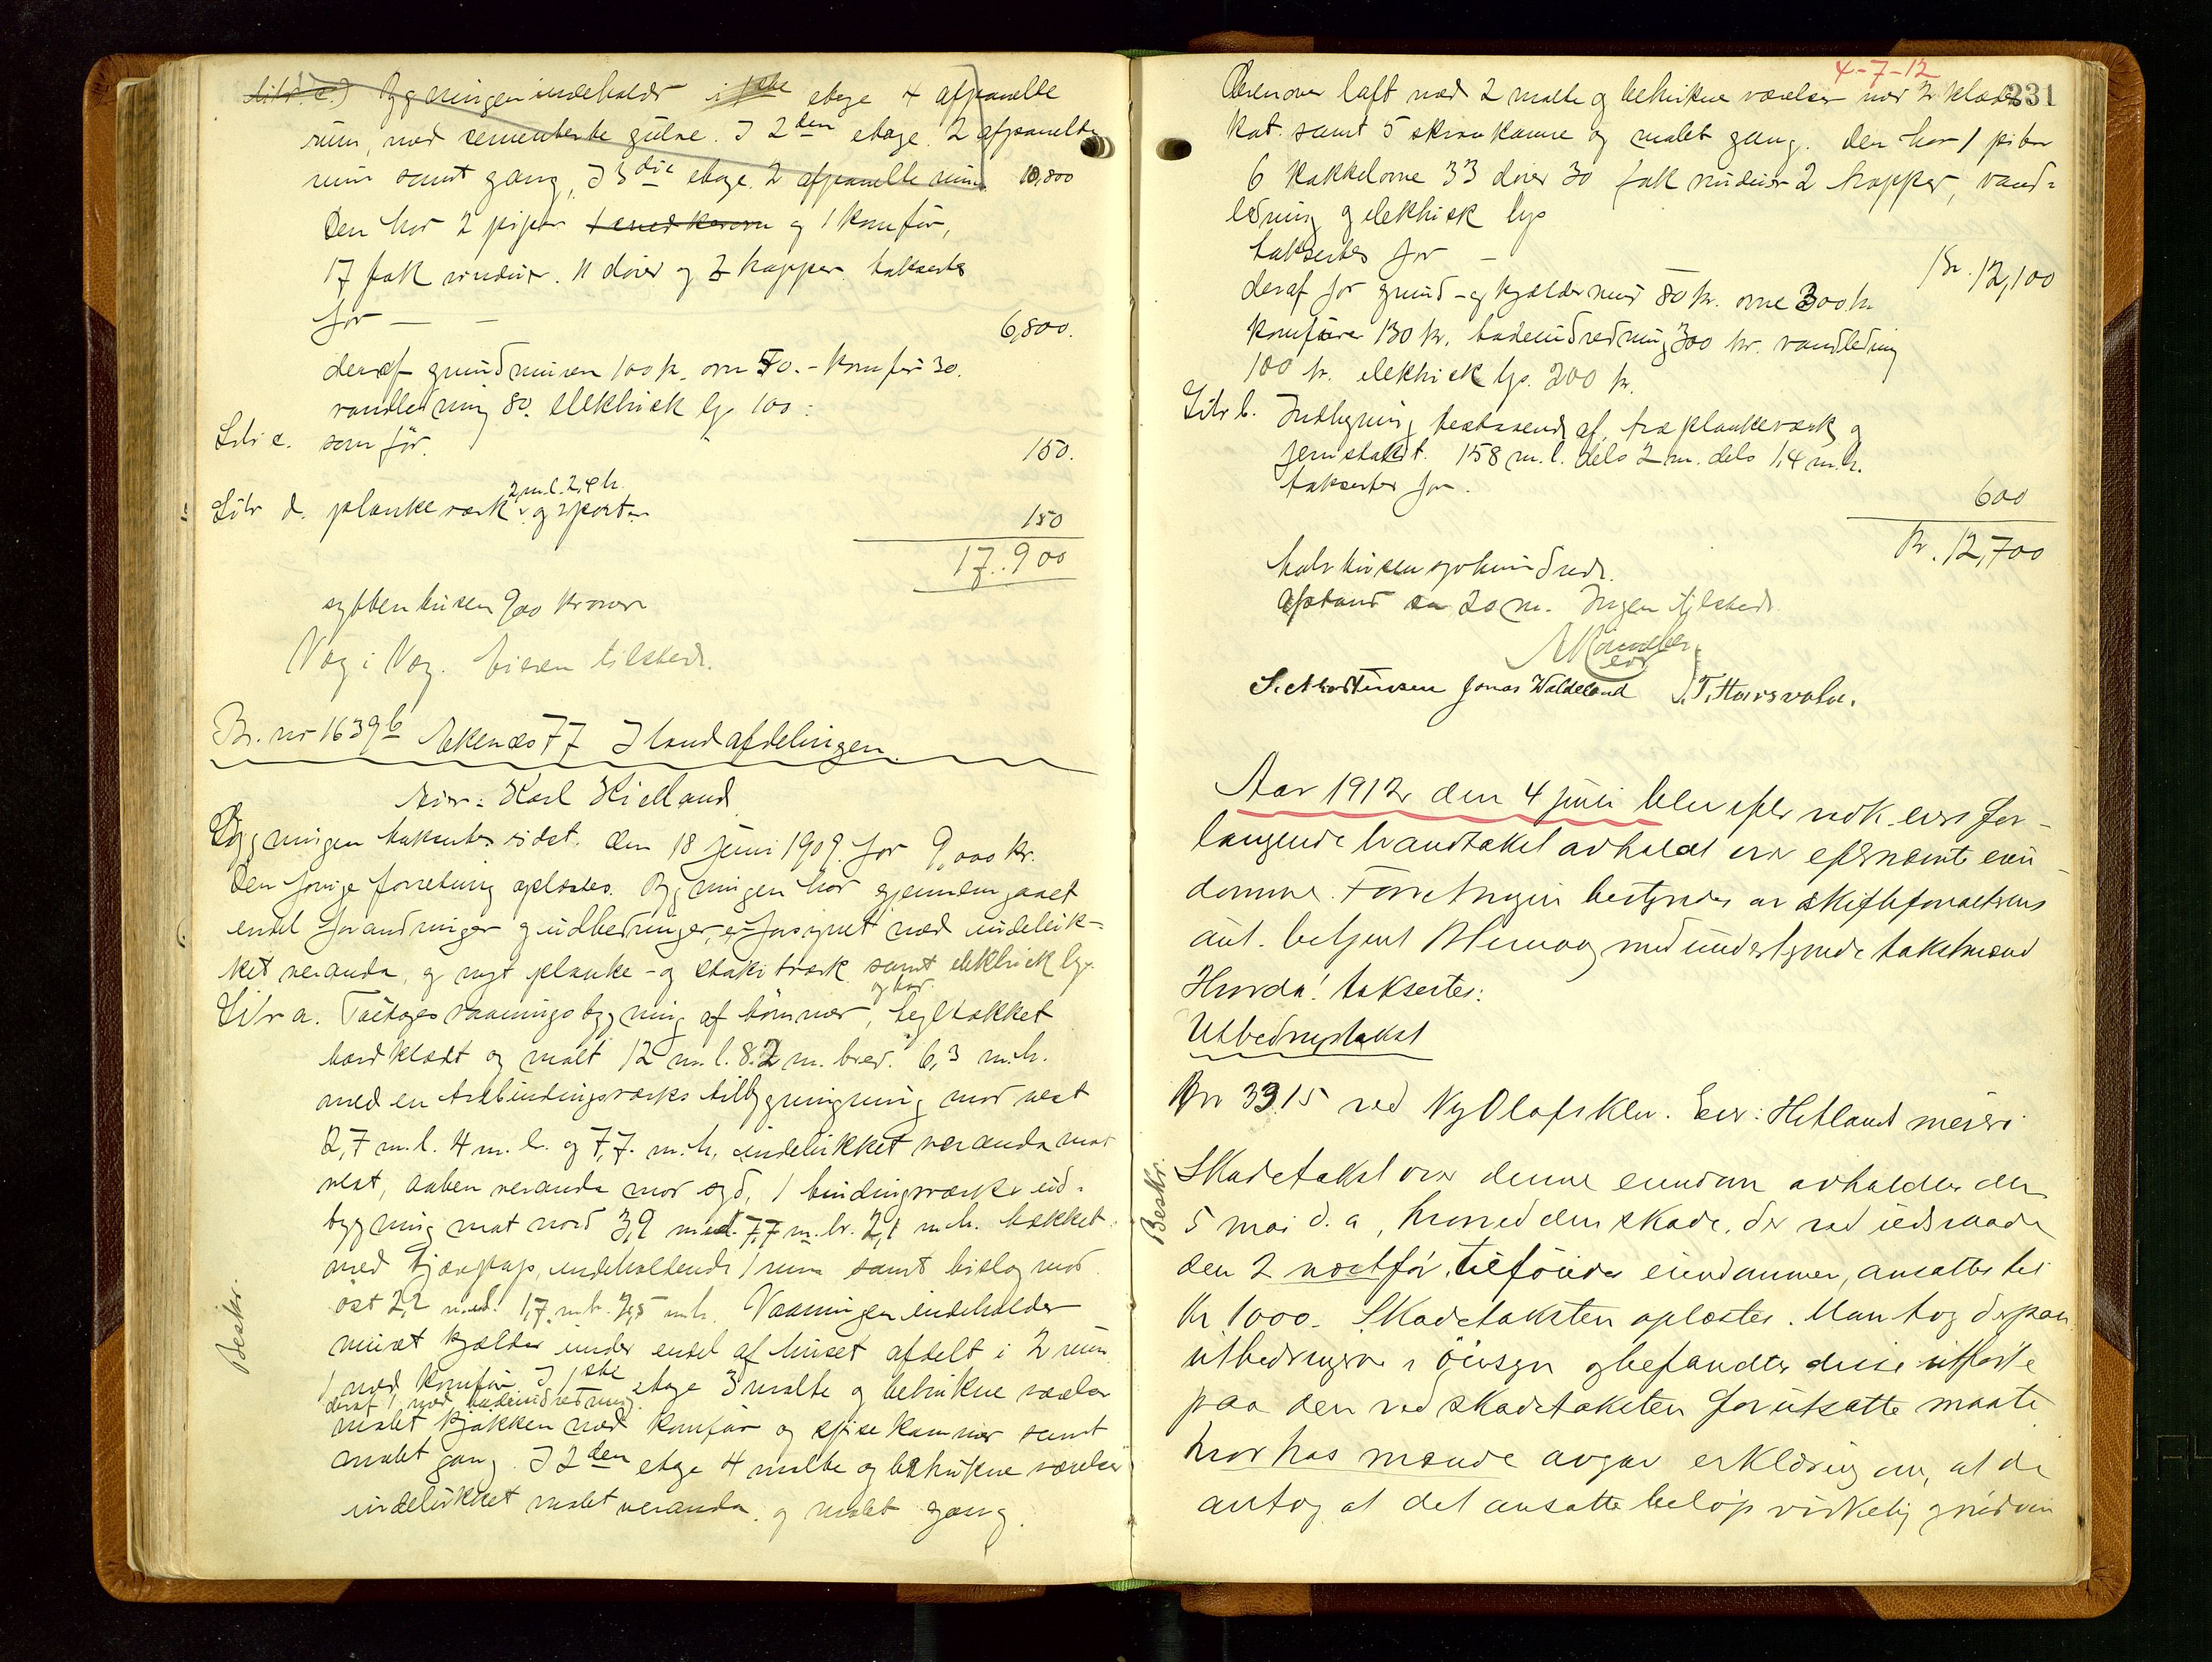 Litr. c.) Bygningen indeholder i 1ste etage 4 afpanelte
rum, med cementerte gulve. I 2den etage 2 afpanelte
rum samt gang, I 3die etage 2 afpanelte rum 10,800
Den har 2 piper og 1 komfür,
17 fak vinduer. 11 dører og 2 trapper taksertes
for — — 6,800.
deraf grundmuren 100 kr. ovn 50.- komfür 30.
vandledning 80. elektrisk lys 100:
Litr c. som før. 150.
2 m.l. 2,4 h.
Litr d. plankeværk og 2 porter 150
17.900
sytten tusen 900 kroner
Væg i Væg. Eieren tilstede.
Br. nr 1639b Ekenæs 77 I landafdelingen
Eier: Karl Kielland
Bygningen takseretes sidst den 18 juni 1909 for 9,000 kr.
Den forrige forretning oplæstes. Bygningen har gjennemgaaet
endel forandringer og udbedringer, er forsynet med indeluk-
ket veranda, og nyt planke- og stakitværk samt elektrisk lys.
og har
Litr a. Toetages vaaningsbygning af tømmer, tegltakket
bordklædt og malt 12 m.l. 8.2 m. bred. 6,3 m.h.
med en utbindingsværks tilbygningning mod vest
2,7 m.l. 4 m.b. og 7,7. m.h. indelukket veranda mot
vest, aaben veranda mod syd, 1 bindingsværks ud-
bygning mot nord 3,9 m.l. 7,7 m.br. 2,1 m.h. tækket
med tjærepap, indeholdende 1 rum samt bislag mod
øst 2,2 m.l. 1,7 m.br. 2,5 m.h. Vaaningen indeholder
Beskr.
muret kjelder under endel af huset afdelt i 2 rum
1 med komfür I 1ste etage 3 malte og betrukne værelser
deraf 1 med badeindretning
malet kjøkken med komfür og spisekammer samt
malet gang. I 2den etage 4 malte og betrukne værelser
indelukket malet veranda og malet gang.
4-7-12
231
Ovenover loft med 2 malte og betrukne værelser med 2 klædes
kot samt 5 skraakamre og malet gang. Den har 1 piber
6 kakkelovne 33 dører 30 fak vinduer 2 trapper, vand-
ledning og elektrisk lys
taksertes for — Kr. 12,100
deraf for grund- og kjældermur 80 kr. ovne 300 kr
komfürer 130 kr. badeindredning 300 kr. vandledning
100 kr. elektrisk lys 200 kr.
Litr b. Indhegning bestaaende af træplankeværk og
jernstakit. 158 m.l. dels 2 m. dels 1,4 m.h.
taksertes for. 600
Kr. 12,700
tolv tusen syvhundrede.
Afstand ca 20 m. Ingen tilstede.
S. Mortensen Jonas Waldeland T. Haarsvoln.
Aar 1912 den 4 juli blev efter vedk. eiers for-
langende brandtakst avholdt over efternævnte eien
domme. Forretningen bestyredes av skifteforvalterens
aut. betjent med undertegnede takstmænd
Hvorda! taksertes:
Utbedringstakst
Br 3315 ved Ny Olafsklev. Eier: Hetland meieri
Beskr.
Skadetakst over denne eiendom avholdtes den
5 mai d.a, hvorved den skade, der ved ildsvaade
den 2 næstfør tilføiedes eiendommen, ansattes til
Kr 1000.- Skadetaksten oplæstes. Man tog derpaa
utbedringerne i øiesyn og befandtes disse utførte
paa den ved skadetaksten forutsatte maate
hvorhos mænde avgav erklæring om, at de
antog at det ansatte beløp virkelig